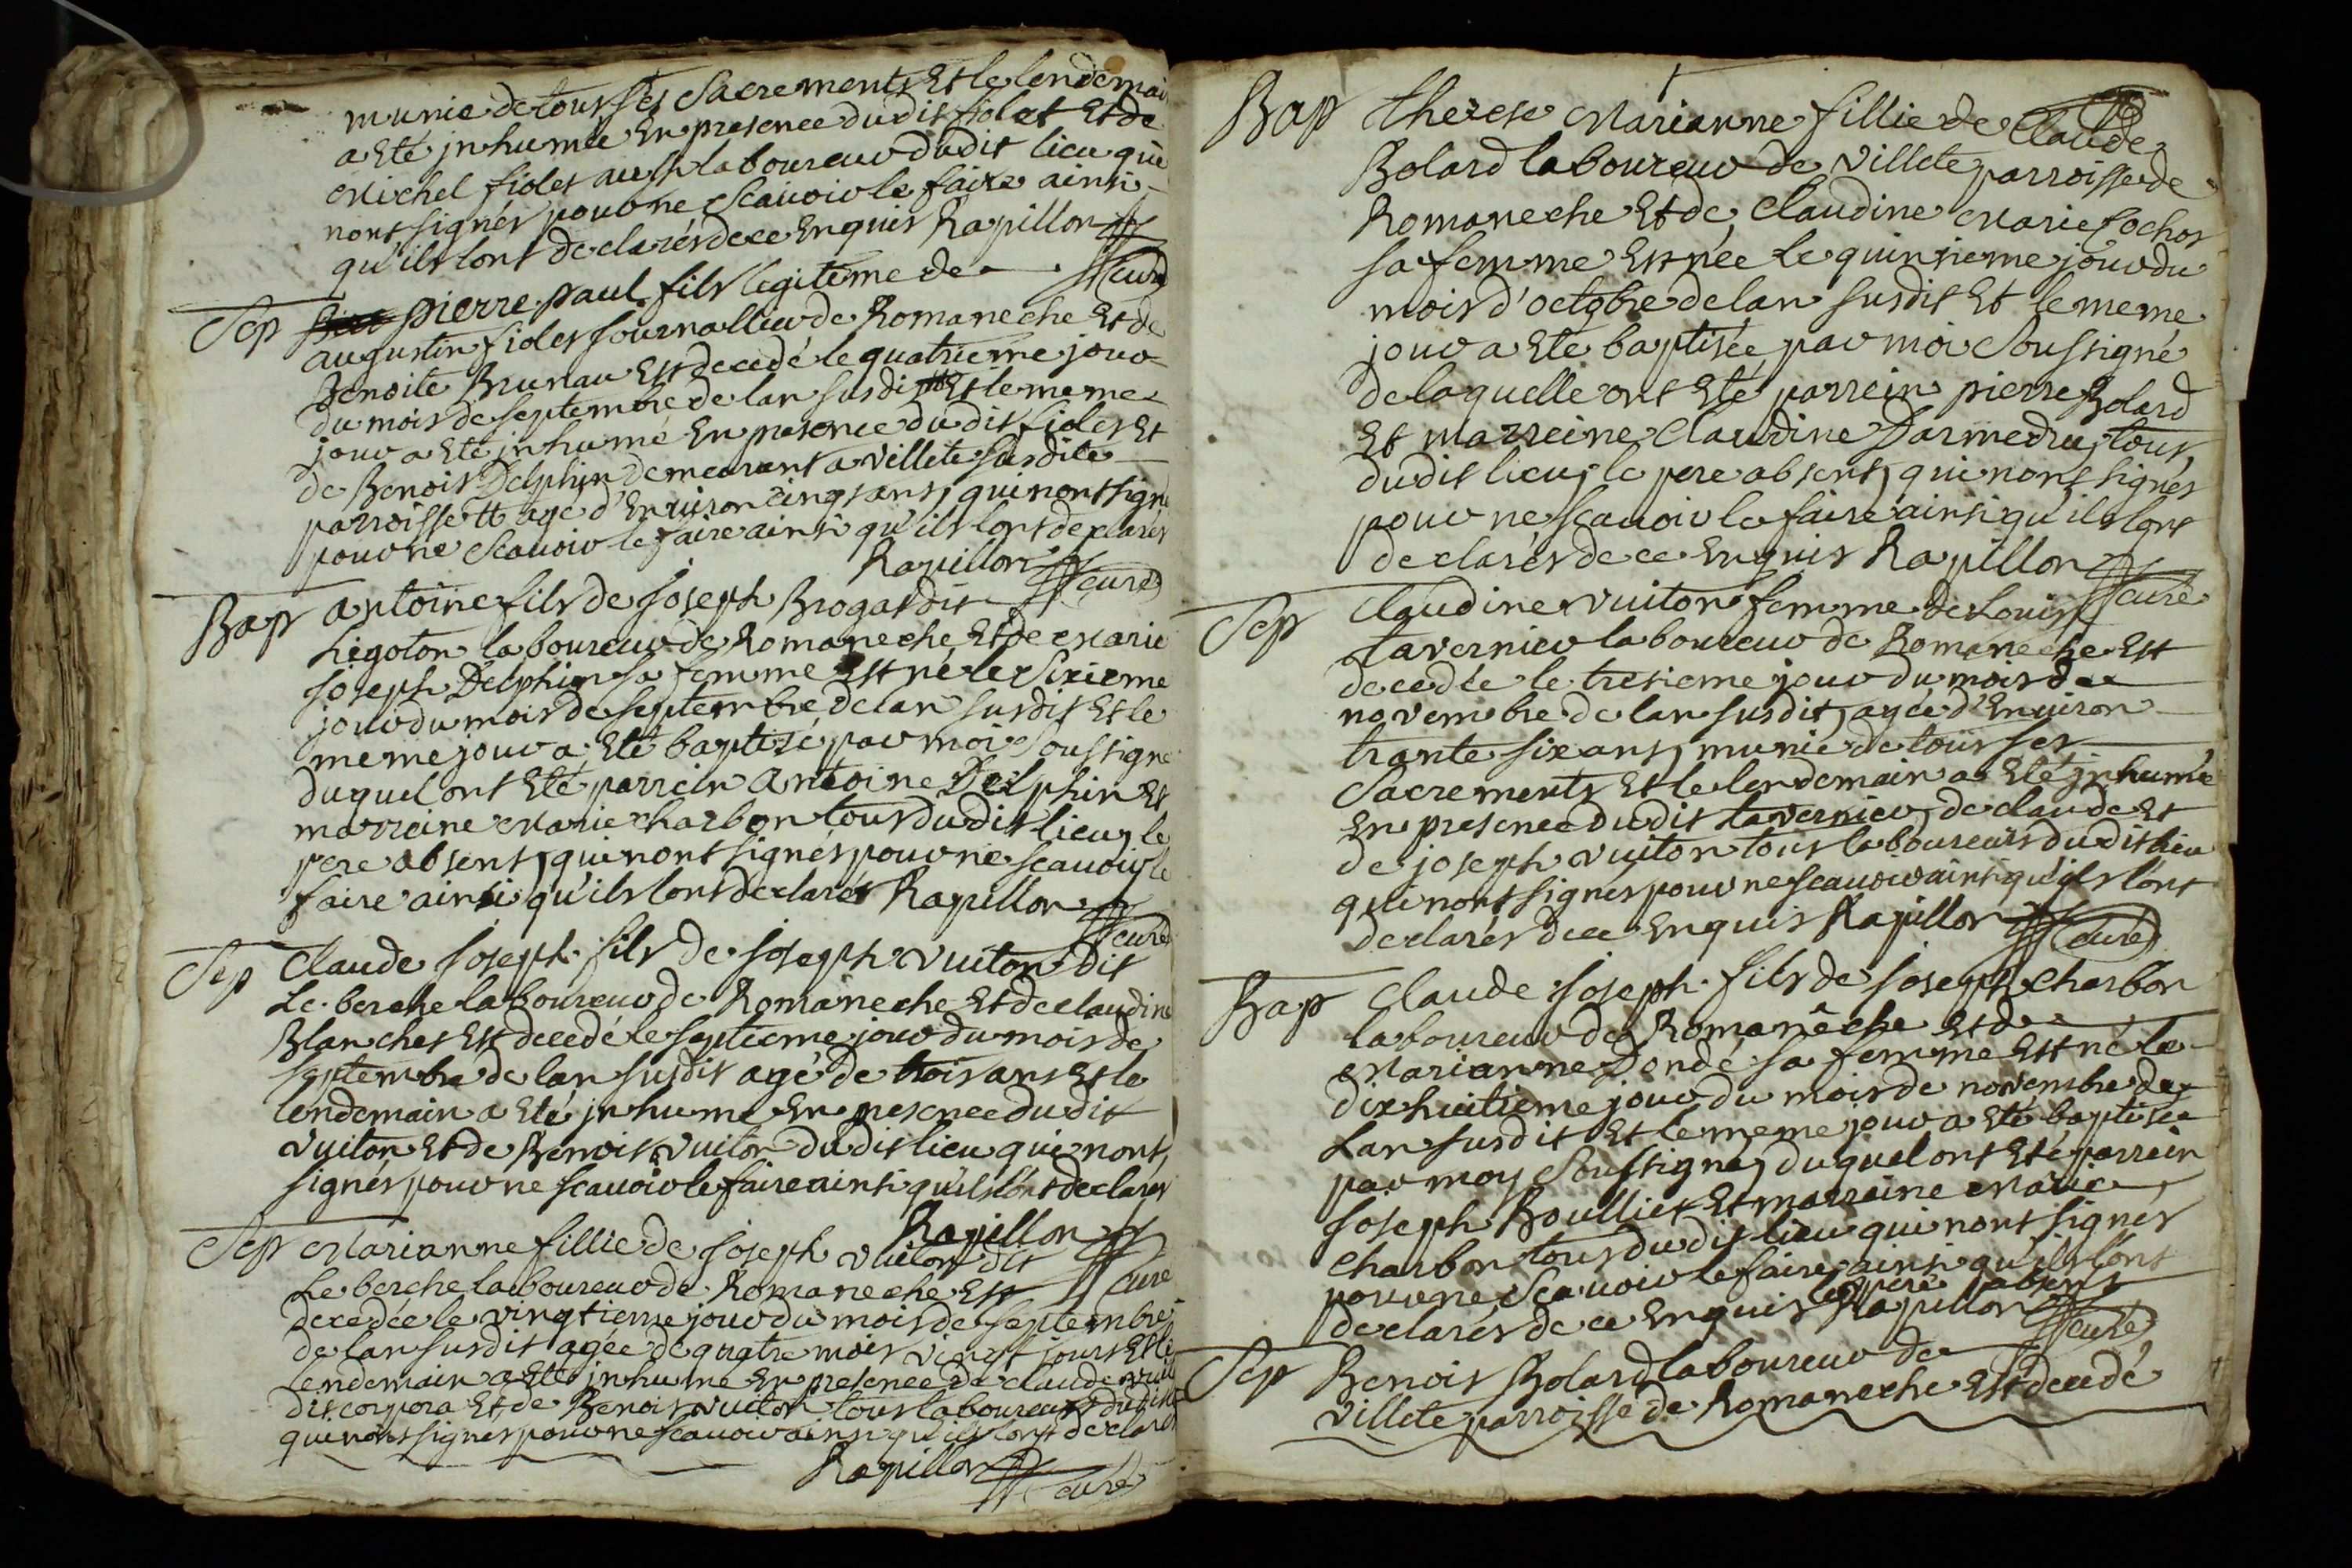 munie de tous ses Sacrements Et le lendemain
a Eté jnhumée En presence dudit fiolet Et de
Michel fiolet aussi laboureur dudit lieu qui
nont signés pour ne Scauoir le faire ainsi
qu'ils lont declarés de ce Enquis Rapillon
curé
Sep pierre paul fils legiteme de
augustin fiolet Journallier de Romaneche Et de
Benoite Brunau Est decedé le quatrieme jour
du mois de septembre de lan susdit Et le meme
jour a Eté jnhumé En presence du dit fiolet Et
de Benoit Delphin demeurant a villete susdite
parroisse agé d'Enuiron cinq ans, qui nont signé
pour ne Scauoir le faire ainsi qu'ils lont declarés
Rapillon curé
Bap antoine fils de Joseph Brogat dit
Ligoton laboureur de Romaneche Et de Marie
Joseph Delphin sa femme Est né le Sixieme
jour du mois de septembre de lan susdit Et le
meme jour a Eté baptisé par moi Soussigné
duquel ont Eté parrein antoine Delphin Et
marreine Marie charbon tous du dit lieu, le
pere absent, qui nont signés pour ne scauoir le
faire ainsi qu'ils lont declarés Rapillon
curé
Sep Claude Joseph fils de Joseph vuiton dit
Le berche laboureur de Romaneche Et de claudine
Blanchet Est decedé le septieme jour du mois de
septembre de lan susdit agé de trois ans Et le
lendemain a Eté jnhumé En presence du dit
vuiton Et de Benoit vuiton du dit lieu qui nont
signés pour ne scauoir le faire ainsi qu'ils lont declarés
Rapillon
Sep Marianne fillie de Joseph vuiton dit
Le berche laboureur de Romaneche Est curé
decedée le vingtieme jour du mois de septembre
de lan susdit agée de quatre mois vingt jours Et le
lendemain a Eté jnhumé En presence de claude
dit corpora Et de Benoit vuiton tous laboureurs du dit
qui nont signés pour ne scauoir ainsi qu'ils lont declarés
Rapillon curé
Bap therese Marianne fillie de Claude
Bolard laboureur de villete parroisse de
Romaneche Et de Claudine Marie Cochet
sa femme Est née le quinsieme jour du
mois d'octobre de lan susdit Et le meme
jour a Eté baptisée par moi Soussigné
de laquelle ont Eté parrein pierre Bolard
Et marreine Claudine Darmedru, tous
dudit lieu, le pere absent, qui nont signés
pour ne scauoir le faire ainsi qu'ils lont
declarés de ce Enquis Rapillon
curé
Sep Claudine vuiton femme de Louis
tavernier laboureur de Romaneche Est
decedée le tresieme jour du mois de
novembre de lan susdit, agée d'Enuiron
trante six ans, munie de tous ses
Sacrements Et le lendemain a Eté jnhumée
En presence dudit tavernier, de claude Et
de joseph vuiton tous laboureurs du dit lieu
qui nont signés pour ne scauoir ainsi qu'ils lont
declarés de ce Enquis Rapillon curé
Bap Claude Joseph fils de Joseph charbon
laboureur de Romanêche Et de
Marianne Dondé sa femme Est né le
dixhuitieme jour du mois de novembre de
Lan susdit Et le meme jour a Eté baptisé
par moy Soussigné, duquel ont Eté parrein
Joseph Boulliet Et marreine Marie
charbon tous du dit lieu qui nont signés
pour ne Scauoir le faire ainsi qu'ils lont
le pere absent
declarés de ce Enquis Rapillon curé
Sep Benoit Bolard laboureur de
villete parroisse de Romaneche Est decedé